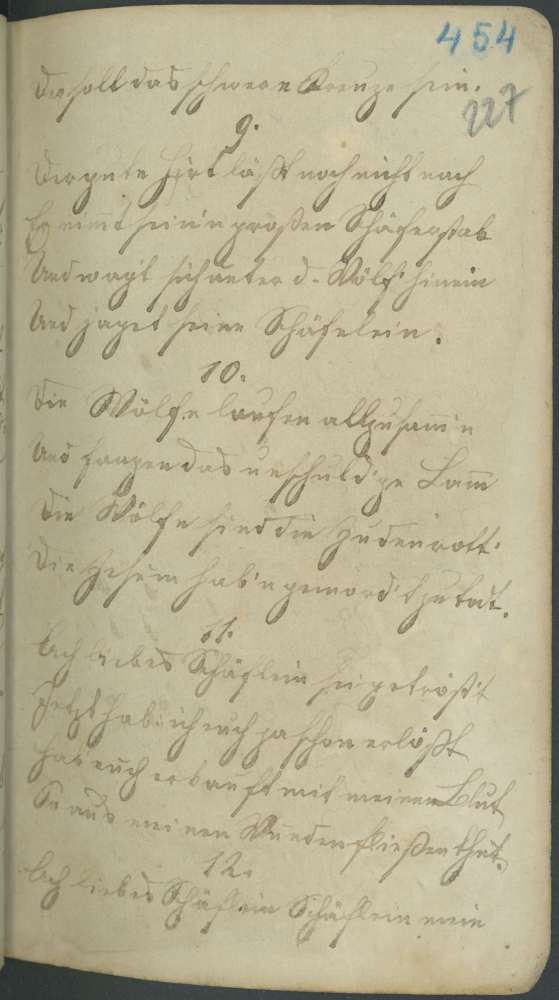 454
Das soll das schwere Kreuze sein.
227
9.
Der gute Hirt läßt noch nicht nach
Er nimt sein'n großen Schäferstab
Und wagt sich unter d. Wölf' hinein
Und jaget seine Schäfelein.
10.
Die Wölfe laufen allzusam̄'n
Und fangen das unschuld'ge Lam̄
Die Wölfe sind die Judenrott'
Die Jesum hab'n gemord't zu todt.
11.
Ach liebes Schäflein sei getröst't
Jetzt hab' ich euch ja schon erlößt
Hab' euch erkauft mit meinem Blut
So aus meinen Wunden fließen thut.
12.
Ach liebes Schäflein Schäflein mein